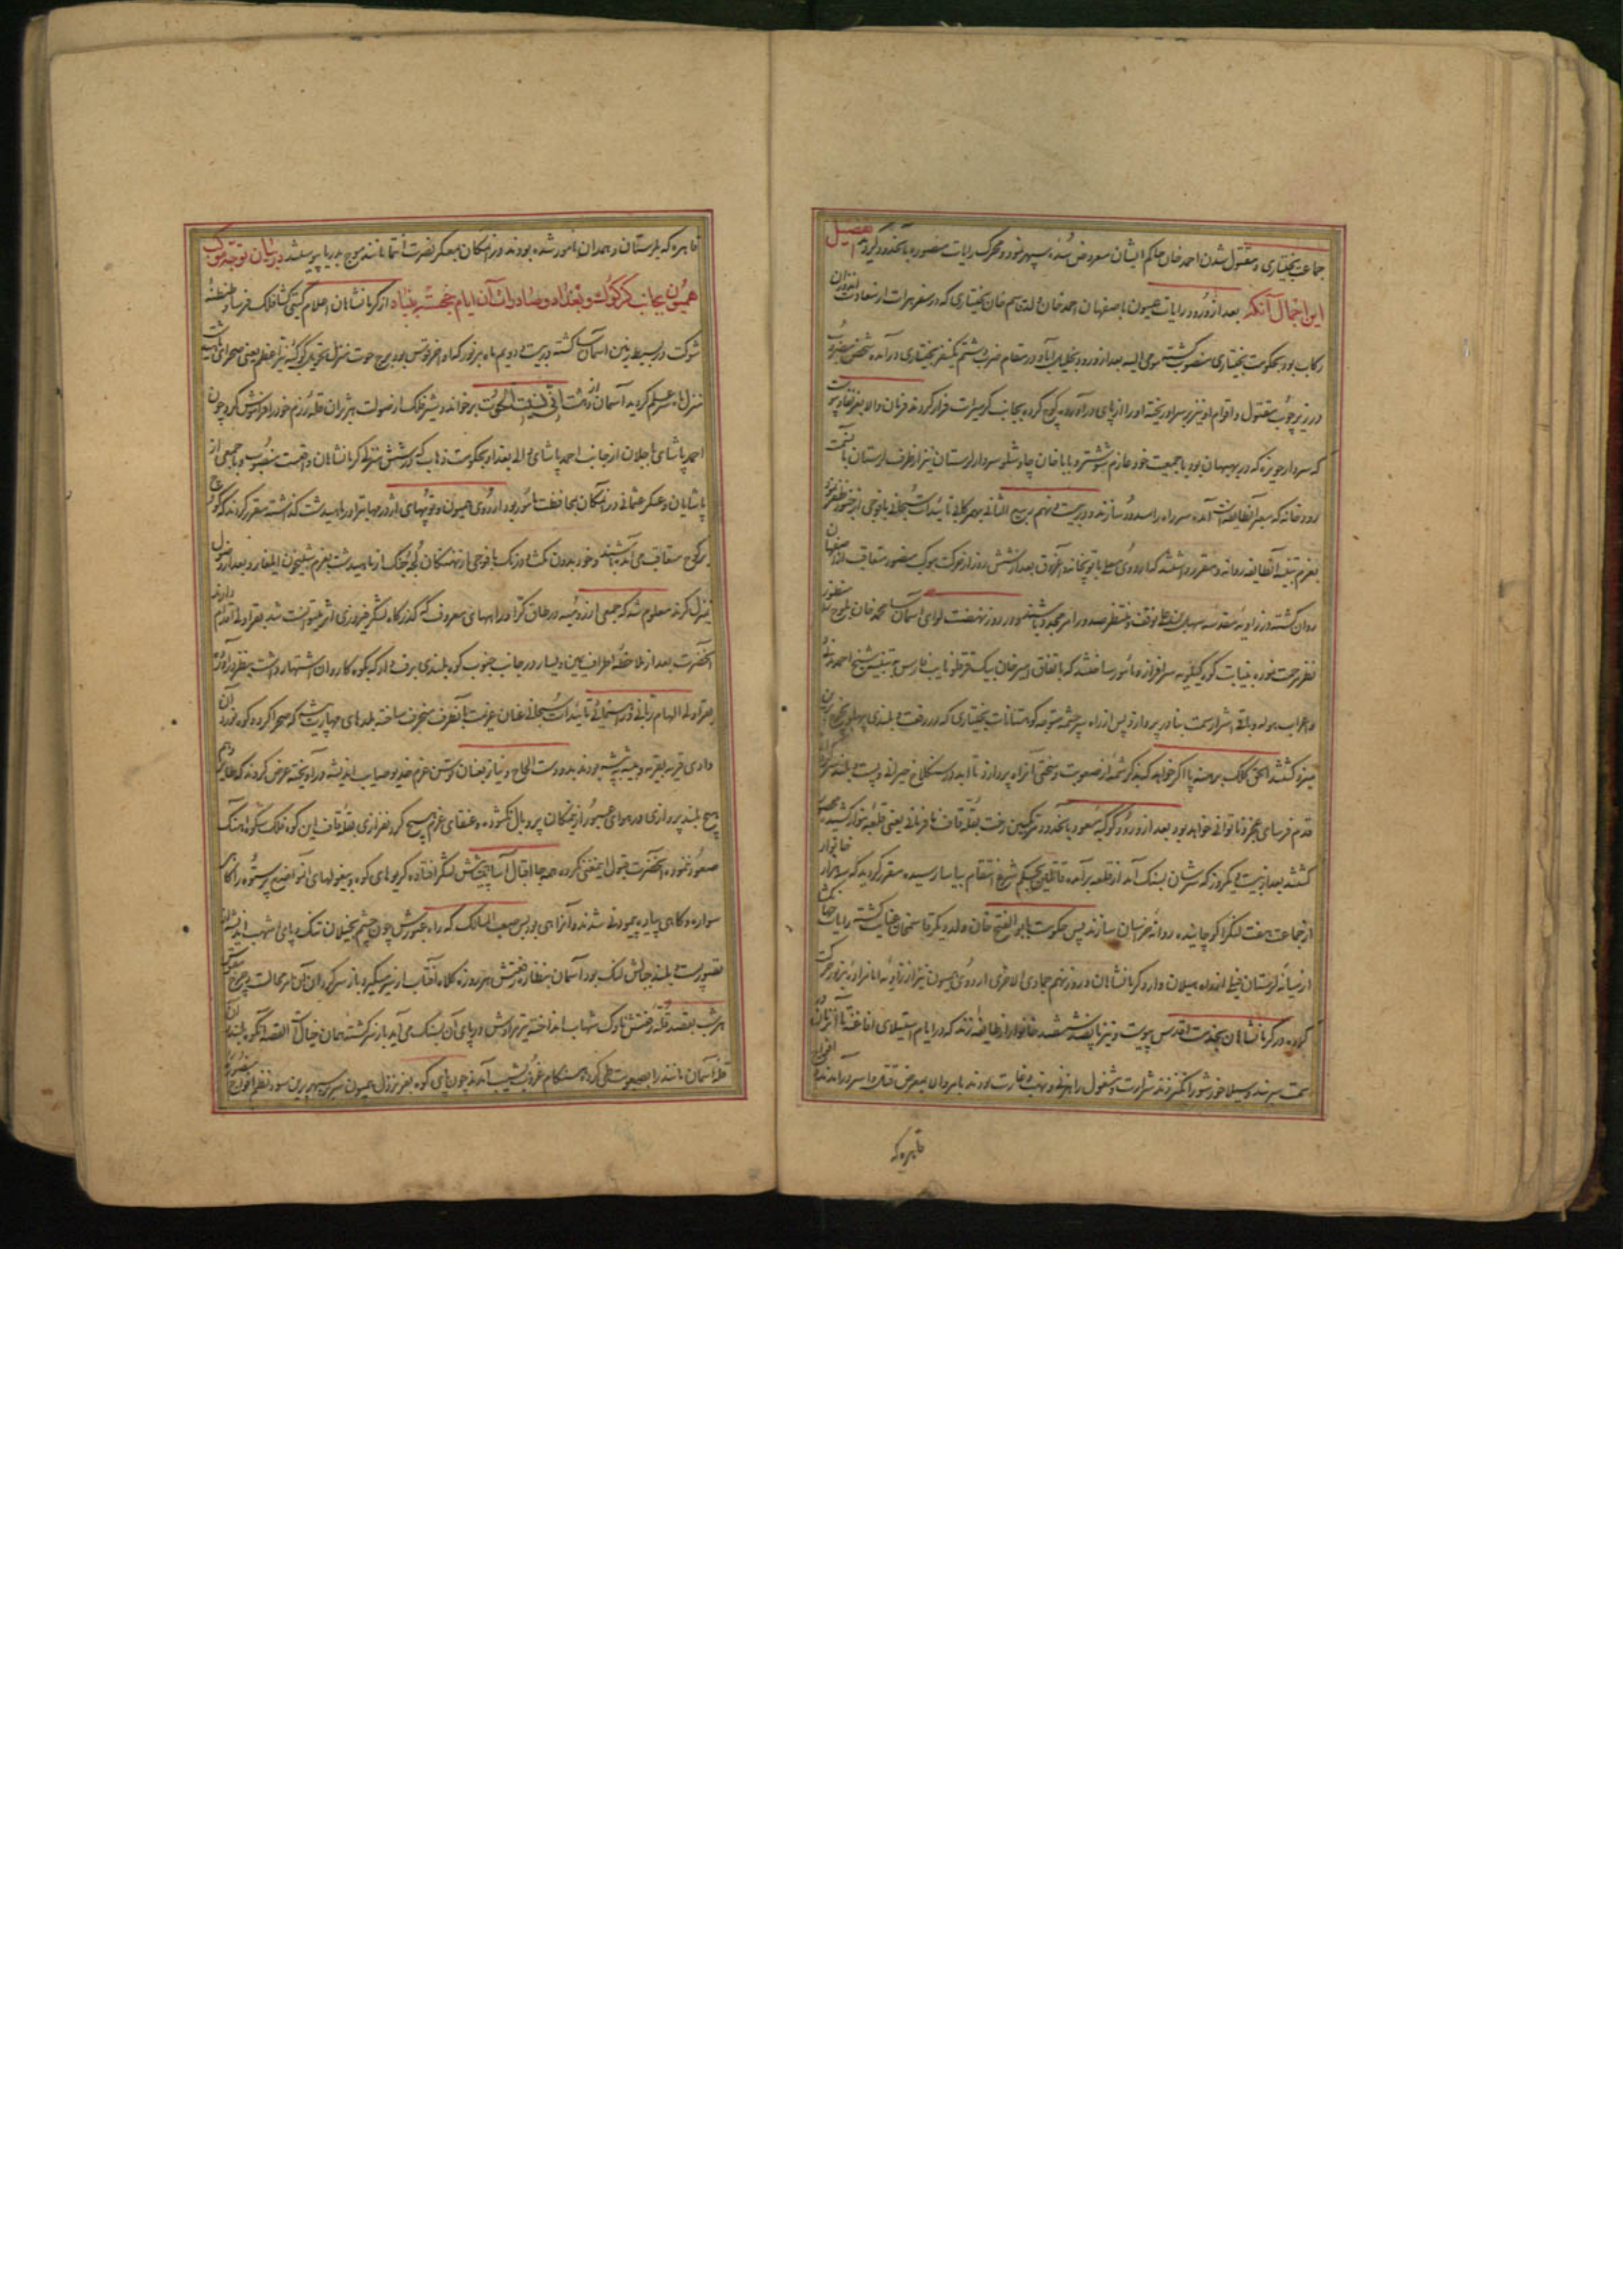 جماعت بختیاری و مقتول شدن احمد خان حاکم ایشان معروض سده سپهر نمود و محرک رایات منصوره بآنحدود گردید تفصیل
این اجمال آنکه بعد از ورود رایات همیون باصفهان احمد خان ولد قاسم خان بختیاری که در سفر هرات از سعادت اندوزان
رکاب بود بحکومت بختیاری منصوب گشته مومی الیه بعد از ورود بخلیل آباد در مقام ضرب و شتم یکنفر بختیاری در آمده شخص مضروب
در زیر چوب مقتول و اقوام او نیز بر سر او ریخته او را از پای در آورده کوچ کرده بجانب کرمسیرات فرار کردند فرمان والا بعز نفاذ پیوست
که سردار حویزه که در بهبهان بود با جمعیت خود عازم شوشتر و بابا خان چاوشلو سردار لرستان نیز از طرف لرستان با سمت
رودخانه که معبر آنطایفه است آمده سر راه را مسدود سازند و در بیست و نهم ربیع الثانی بهمرکابی تائیدات سبحانی با فوجی از جنود ظفر نمود
بعزم تنبیه آنطایفه روانه و مقرر داشتند که اردوی معلی با توپخانه و آغروق بعد از شش روز از حرکت موکب منصور متعاقب از اصفهان
روان گشته در زاویه مقدسه سهل علی توقف و منتظر صدور امر مجدد باشند و در روز نهضت لوای آسمان سا محمد خان بلوچ منظور
نظر مرحمت نموده بنیابت کوه کیلویه سرافراز و مأمور ساختند که باتفاق امیر خان بیک قرقلو نایب فارس به تنبیه شیخ احمد مدنی
و اعراب هوله و باقی اشرار سمت بنادر پردازد پس از راه سرچشمه متوجه کوهستانات بختیاری که در رفعت و بلندی پهلو بچرخ برین
میزد گشتند الحق کلک برهنه پا اگر خواهد که بذکر شمهٔ از صعوبت و سختی آنراه پردازد تا ابد در سنگلاخ حیرانی و پست و بلند سرگردانی
قدم فرسای عجز و ناتوانی خواهد بود بعد از ورود کوکبه مسعود بآنحدود متمکنین رخت بقلهٔ قاف نافرمانی یعنی قلعه بنوار کشیده محصور
گشتند بعد از بیست و یکروز که سرشان بسنگ آمد از قلعه برآمده قاتلین بحکم شرع انتقام بیاسا رسیده مقرر گردید که سه هزار خانوار
از جماعت هفت لنگ را کوچانیده روانهٔ خراسان سازند پس حکومت بابو الفتح خان ولد دیگر قاسم خان عنایت گشته رایات
از میانه لرستان فیلی از راه هیلان وارد کرمانشاهان و روز نهم جمادی الاخری اردوی همیون نیز از زاویه امامزاده نیز حرکت
کرده در کرمانشاهان بخدمت اقدس پیوست و نیز پانصد ششصد خانوار از طایفهٔ زند که در ایام استیلای افاغنه تا آنزمان در
سمت سربند و سیلاخور شور انگیز زند شرارت و مشغول راهزنی و نهب و غارت بودند بامر والا بمعرض قتل و اسر در آمدند افواج
قاهره که
قاهره که بلرستان و همدان مأمور شده بودند در آنمکان بمعسکر نصرت انتما مانند موج بدریا پیوستند در بیان توجه موکب
همیون بجانب کرکوک و بغداد و صادرات آن ایام خجسته بنیاد از کرمانشاهان اعلام گیتی گشا فلک فرسا و طنطنهٔ
شوکت در بسیط زمین آسمان سا گشته در بیست و دویم ماه مزبور که اواخر قوس بود
منزل ماه علم گردید آسمان از دهشت انی نسیت الحوت برخواند و شیر فلک از صولت هژبران قله رزم خود را فراموش کرد چون
احمد پاشای باجلان از جانب احمد پاشای والی بغداد بحکومت ذهاب که در شش منزلی کرمانشاهان واقعست منصوب و با جمعی از
پاشایان و عسکر عثمانی در آنمکان بمحافظت مأمور بود اردوی همیون و توپهای اژدر مهابت را در ماهیدشت گذاشته مقرر کردند که کوچ
بر کوچ متعاقب می آمده باشند و خود بدون مکث و درنگ با فوجی از نهنگان لجهٔ جنگ از ماهیدشت بعزم شبیخون ایلغار و بعد از وصول
بمنزل کرند معلوم شد که جمعی از رومیه در طاق کرا و راههای معروف که گذرگاه لشکر فیروزی اثر میتوانست شد بقراولی اقدام دارند
آنحضرت بعد از ملاحظهٔ اطراف یمین و یسار در جانب جنوب کوه بلندی پر برف که بکوه کاروان اشتهار داشت بنظر در آورده
بقراولی الهام ربانی و رهنمائی تائیدات سبحانی عنان عزیمت بآنطرف منحرف ساخته بلدهای مهارت پیشه که صحرا گرد و کوه نورد آن
وادی قریه بقریه و بیشه به بیشه بودند بدو دست الحاح و نیاز بعنان توسن عزم خدیو صایب اندیشه در آویخته عرض کردند که طایر وهم
هیچ بلند پروازی در هوای عبور از آنمکان پر و بال نگشوده و عنقای عزم هیچ گردنفرازی بقلهٔ قاف این کوه فلک شکوه آهنگ
صعود ننموده آنحضرت قبول اینمعنی نکرده همه جا اقبال آسا پیش لشکر افتاده کریوه های کوه و بیغولهای
سواره و گاهی پیاده پیمودنی شدند و آنراهی بود بس صعب المسالک که راه عبورش چون چشم بخیلان تنک و پای اشهب اندیشه از
تصور پست و بلند جبالش لنگ بود آسمان بنظارهٔ رفعتش هر روزه کلاه آفتاب از سر میگیرد و باز
هر شب بقصد قلهٔ رفعتش ناوک شهاب انداخته تیر مرادش در پای آن بسنگ می آید باز سرگشته همان خیال آن القصه آنکوه بلند
قلهٔ آسمان مانند را بصعوبت طی کرده هنگام غروب بنشیب آمدند چون پای کوه بعز نزول همیون همسر سپهر برین بود بنظم افواج منصوره